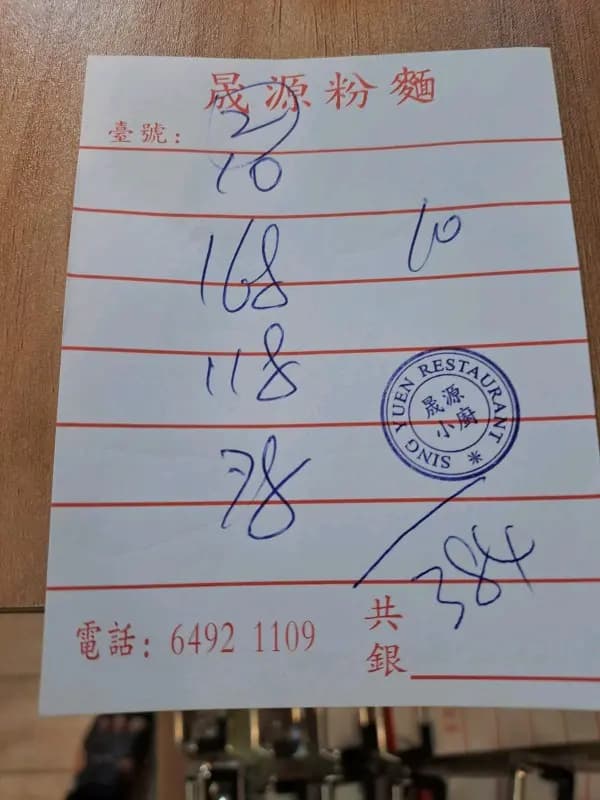 晟源粉麵
臺號: 2
10
168 10
118
SING YUEN RESTAURANT *
晟源
小廚
78
384
電話: 6492 1109
共
銀